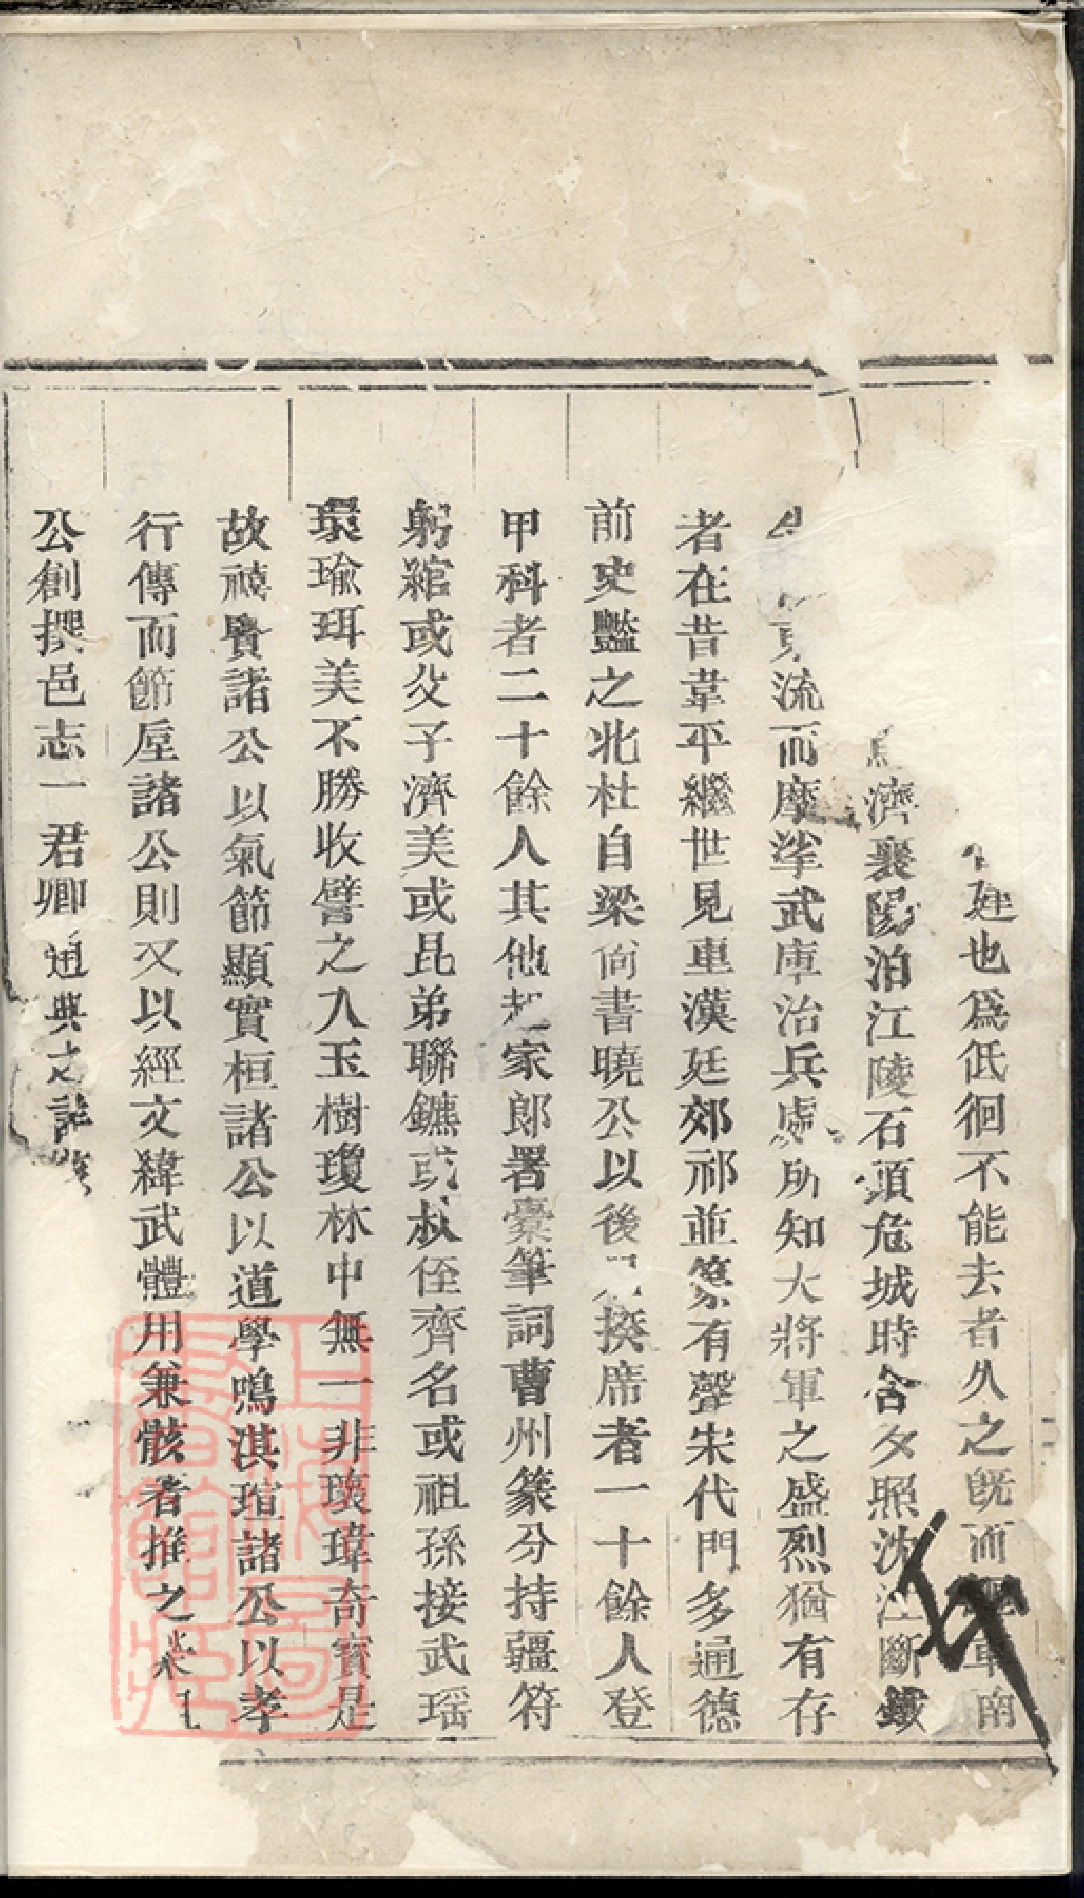 建也爲低徊不能去者久之旣而車南
濟襄陽泊江陵石頭危城時含夕照沈江斷鐵
流而摩挲武庫治兵處所知大將軍之盛烈猶有存
者在昔韋平繼世見重漢廷郊祁並篆有聲宋代門多通德
前史豔之北杜自梁尙書曉公以後揆席者一十餘人登
甲科者二十餘人其他起家郎署橐筆詞曹州篆分持疆符
躬綰或父子濟美或昆弟聯鑣或叔侄齊名或祖孫接武瑶
環瑜珥美不勝收譬之入玉樹瓊林中無一非瓌瑋奇寶是
故禧賢諸公以氣節顯實桓諸公以道學鳴淇瑄諸公以孝
行傳而節垕諸公則又以經文緯武體用兼骸著推之
公創撰邑志一君卿通典文
上海圖書館藏